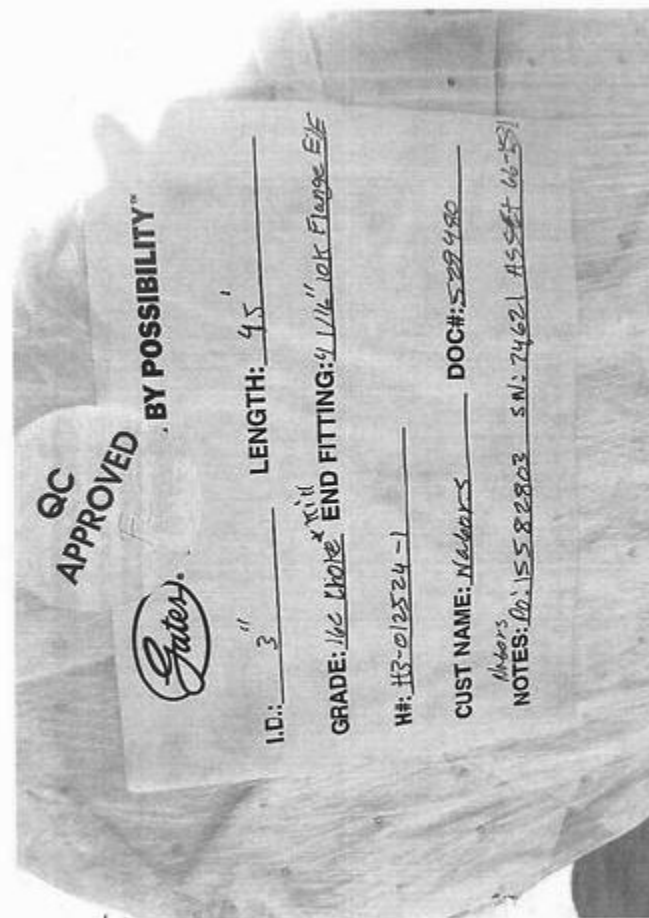 QC
APPROVED
Gates. BY POSSIBILITY™
I.D.: 3" LENGTH: 45'
GRADE: 16C Choke & Kill END FITTING: 4 1/16" 10K Flange E/E
H#: H3-012524-1
CUST NAME: Nabors DOC#: 529480
Nabors
NOTES: Pn: 15582803 SN: 74621 ASSET 66-1531